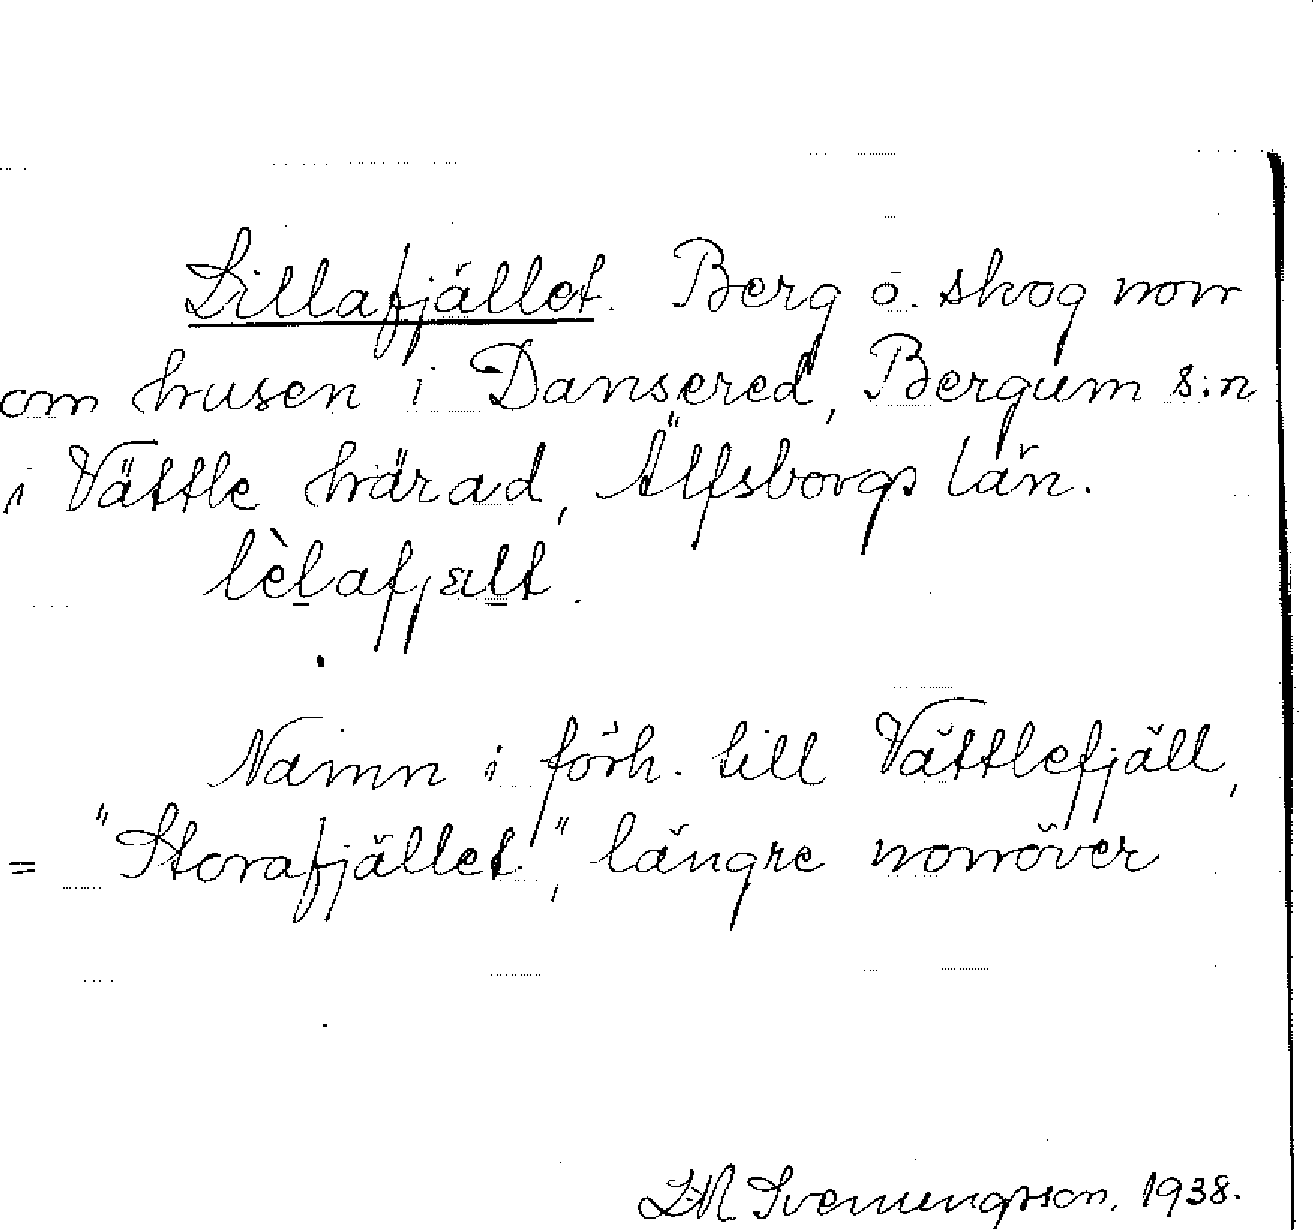 Lillafjället. Berg o. skog norr
om husen i Dansered, Bergum s:n
i Vättle härad, Älfsborgs län.
lèlafjælt.
Namn i förh. till Vättlefjäll,
= "Storafjället", längre norröver
LM Svenungsson. 1938.